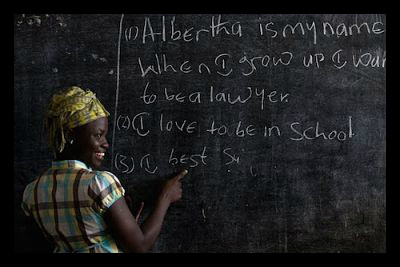 (1) Albertha is my name
When I grow up I wan
to be a lawyer
(2) I love to be in School
(3) I best Su